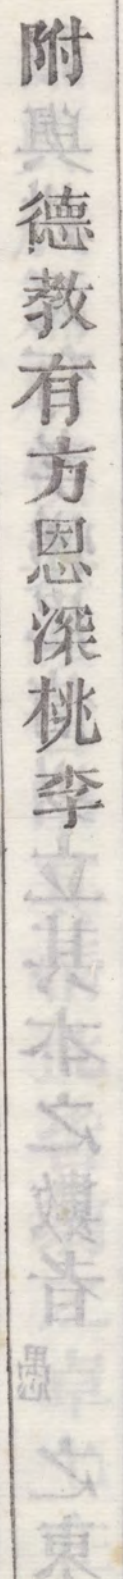 附　德教有方恩深桃李